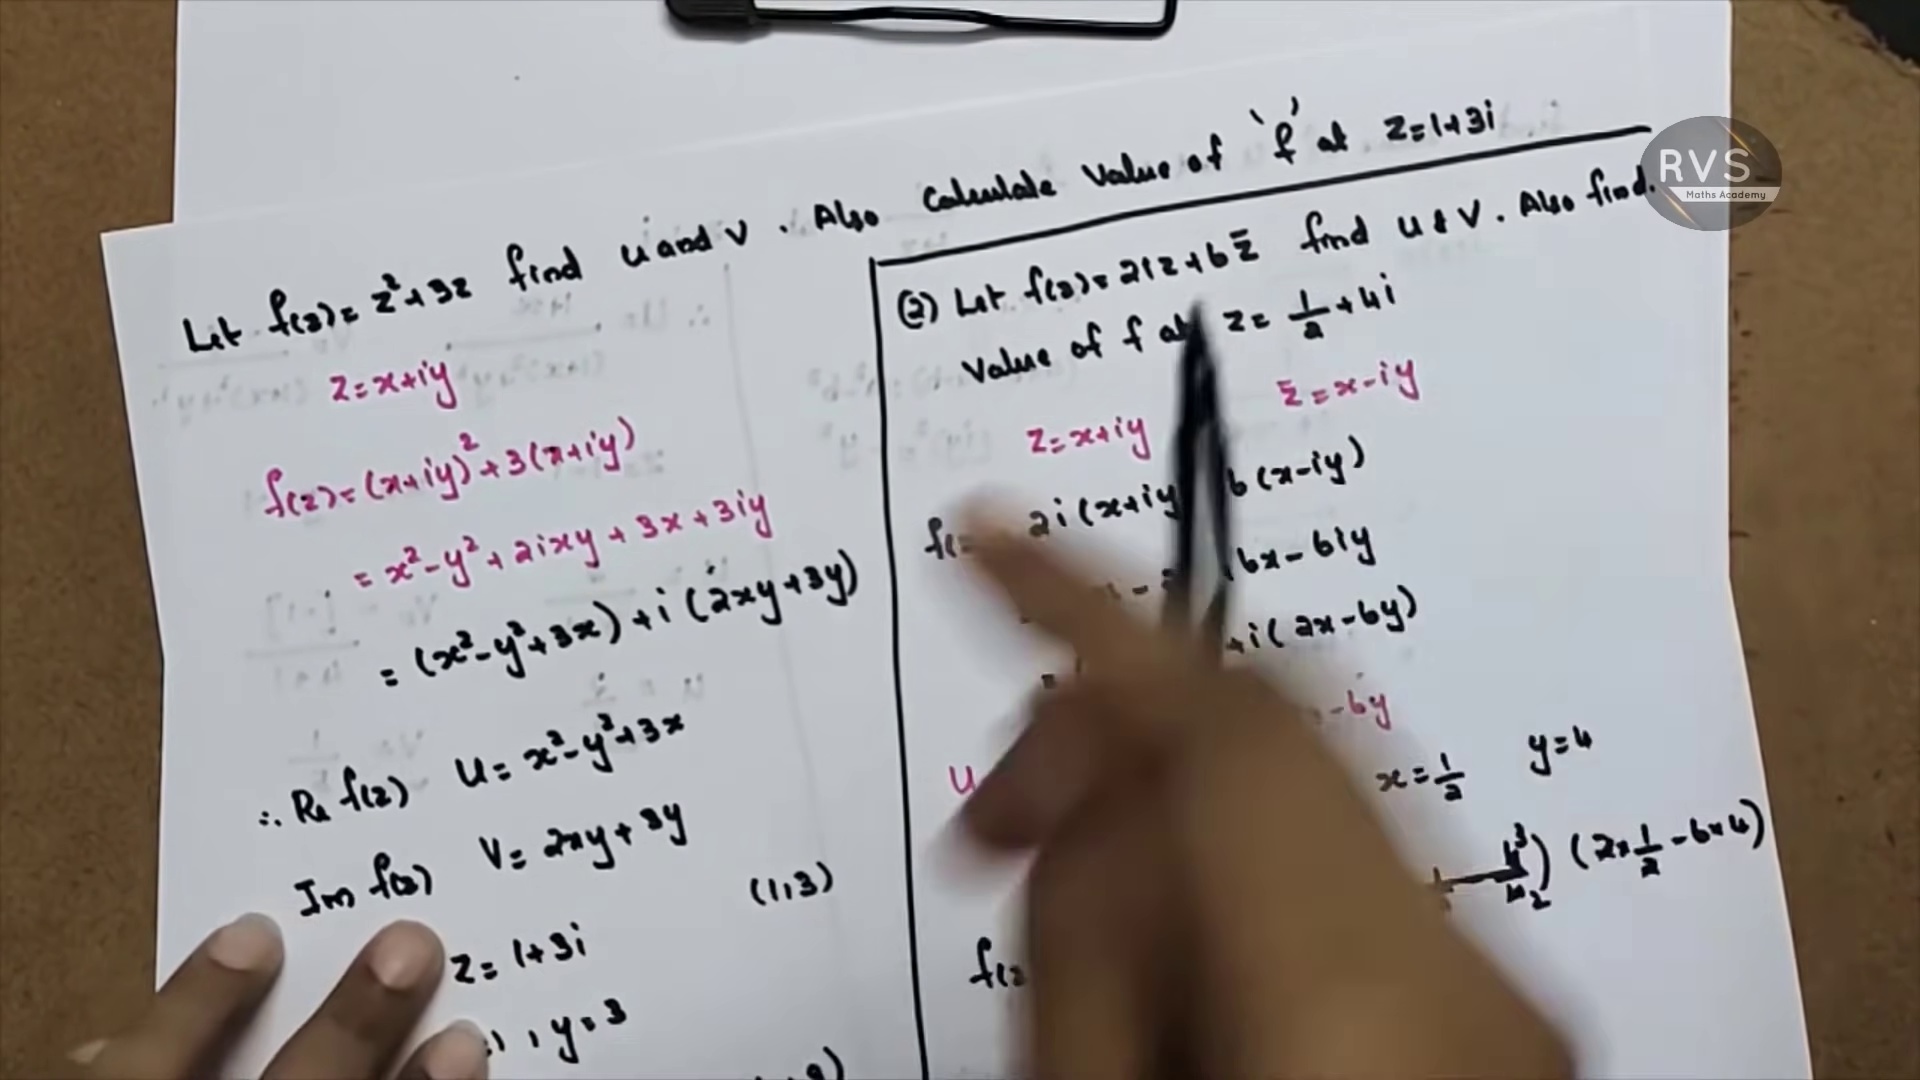 Let f(z)= z²+3z find u and v . Also Calculate Value of 'f' at z=1+3i
z=x+iy
f(z)=(x+iy)²+3(x+iy)
= x²-y²+2ixy+3x+3iy
= (x²-y²+3x)+i(2xy+3y)
∴ Re f(z) U= x²-y²+3x
Im f(z) V= 2xy+3y
(1,3)
z= 1+3i
, y=3
(2) Let f(z)= 2iz+6z̄ find u & v . Also find.
Value of f at z= 1/2+4i
z=x+iy z̄=x-iy
2i(x+iy 6(x-iy)
6x-6iy
+i(2x-6y)
-6y
U
x=1/2 y=4
(2×1/2-6×4)
RVS
Maths Academy